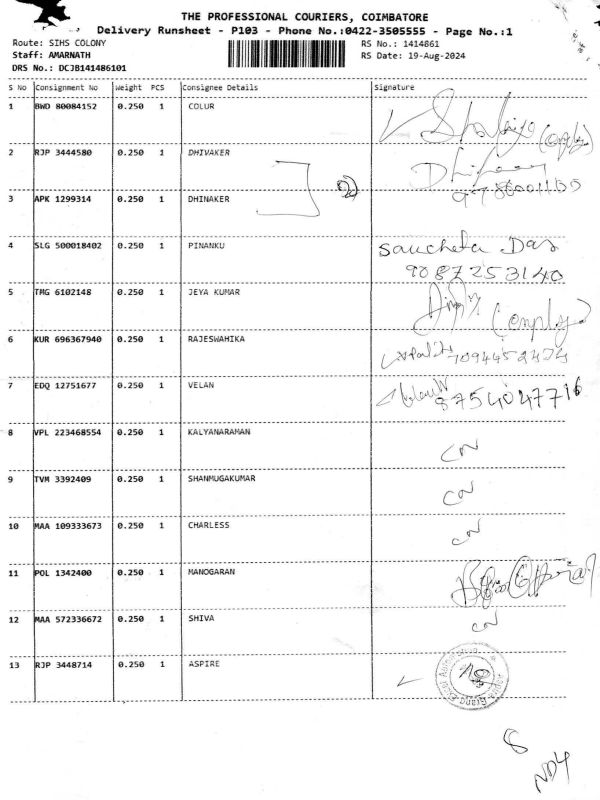 THE PROFESSIONAL COURIERS, COIMBATORE
Delivery Runsheet - P103 - Phone No.:0422-3505555 - Page No.:1
Route: SIHS COLONY
RS No.: 1414861
Staff: AMARNATH
RS Date: 19-Aug-2024
DRS No.: DCJB141486101
S No Consignment No Weight PCS Consignee Details Signature
1 BWD 80084152 0.250 1 COLUR
2 RJP 3444580 0.250 1 DHIVAKER
3 APK 1299314 0.250 1 DHINAKER
4 SLG 500018402 0.250 1 PINANKU Saucheta Das
9087253140
5 TMG 6102148 0.250 1 JEYA KUMAR
6 KUR 696367940 0.250 1 RAJESWAHIKA
7 EDQ 12751677 0.250 1 VELAN 8754047716
8 VPL 223468554 0.250 1 KALYANARAMAN CN
9 TVM 3392409 0.250 1 SHANMUGAKUMAR CN
10 MAA 109333673 0.250 1 CHARLESS CN
11 POL 1342400 0.250 1 MANOGARAN
12 MAA 572336672 0.250 1 SHIVA CN
13 RJP 3448714 0.250 1 ASPIRE
8